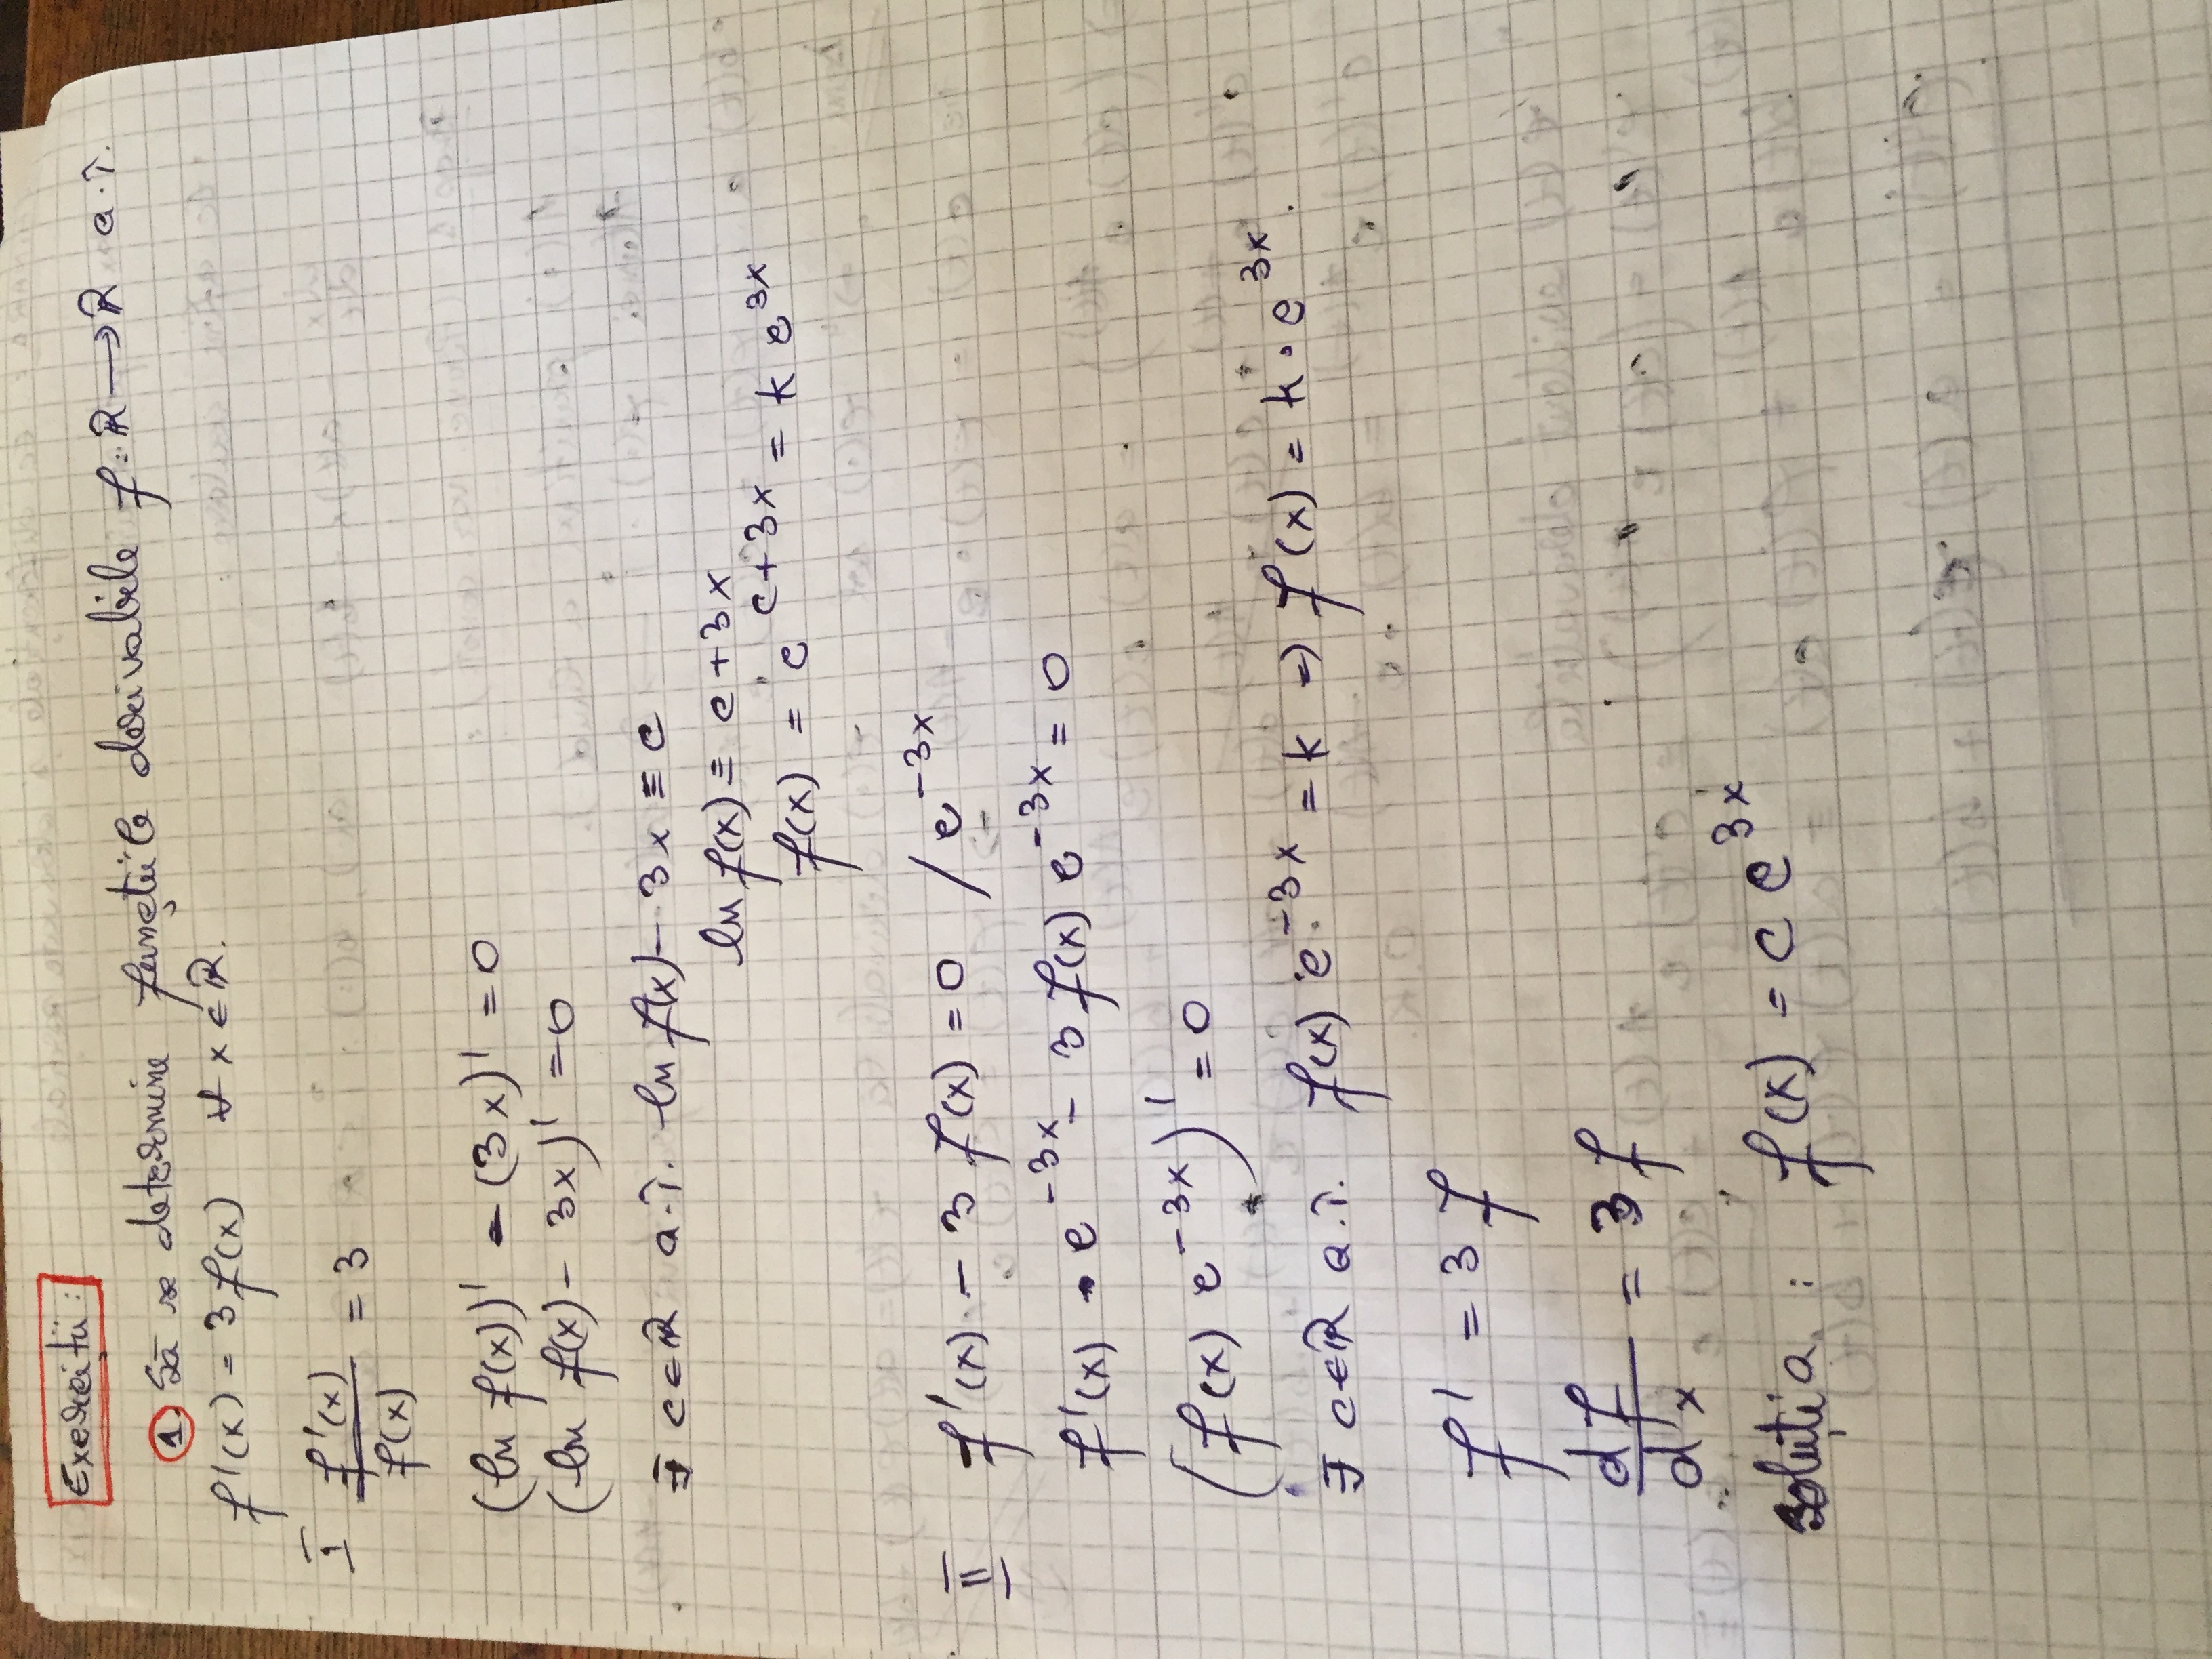 Exerciții:
1. Să se determine funcțiile derivabile f: ℝ → ℝ a.î.
f'(x) = 3f(x) ∀ x ∈ ℝ.
I f'(x)/f(x) = 3
(ln f(x))' - (3x)' = 0
(ln f(x) - 3x)' = 0
∃ c∈ℝ a.î. ln f(x) - 3x ≡ c
ln f(x) ≡ c + 3x
f(x) = e^{c+3x} = k e^{3x}
II f'(x) - 3 f(x) = 0 / e^{-3x}
f'(x) · e^{-3x} - 3 f(x) e^{-3x} = 0
(f(x) e^{-3x})' = 0
∃ c∈ℝ a.î. f(x) e^{-3x} = k ⇒ f(x) = k · e^{3x}.
f' = 3 f
df/dx = 3 f
soluția : f(x) = c e^{3x}